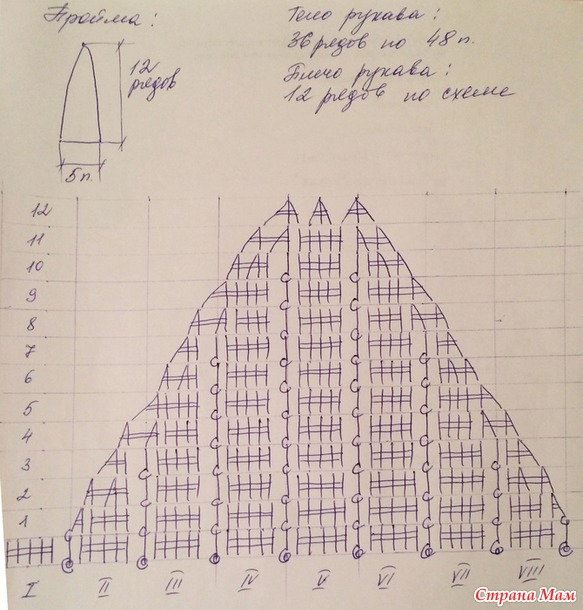 Пройма:
12
рядов
5п.
Тело рукава:
36 рядов по 48 п.
Плечо рукава:
12 рядов по схеме
12
11
10
9
8
7
6
5
4
3
2
1
I II III IV V VI VII VIII
Страна Мам